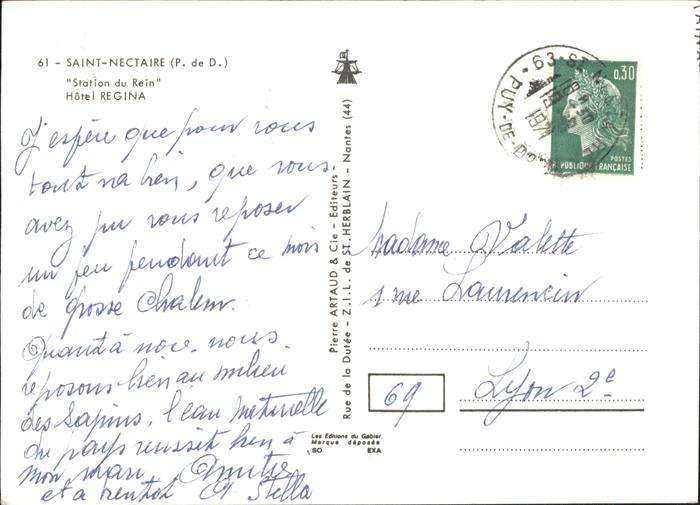 61 - SAINT-NECTAIRE (P. de D.)
"Station du Rein"
Hôtel REGINA
J'espère que pour vous
tout va bien, que vous
avez pu vous reposer
un peu pendant ce mois
de grosse Chaleur.
Quant à nous, nous
reposons bien au milieu
des Sapins, l'eau naturelle
du pays reussit bien à
mon mari. Amitiés
et a bientot Stella
Pierre ARTAUD & Cie - Editeurs -
Rue de la Dutée - Z.I.L. de ST. HERBLAIN - Nantes (44)
Les Editions du Gabier
Marque déposée
SO EXA
63-ST-NECTAIRE
1971
PUY-DE-DOME
0,30
POSTES
REPUBLIQUE FRANÇAISE
Madame Valette
1 rue Laurencin
69 Lyon 2e